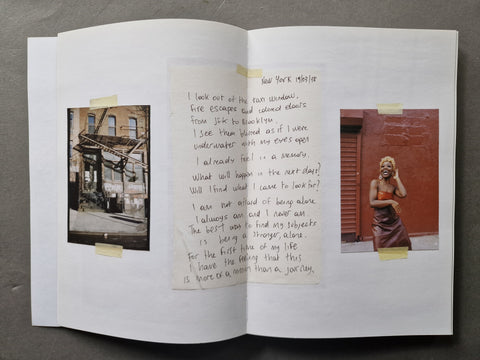 New York 19/03/
I look out of the van window.
Fire escapes and colored doors
from JFK to Brooklyn.
I see them blurred as if I were
underwater with my eyes open
I already feel in a memory.
What will happen in the next days?
Will I find what I came to look for?
I am not afraid of being alone
I always am and I never am
The best way to find my subjects
is being a stranger, alone.
For the first time of my life
I have the feeling that this
is more of a mission than a journey.